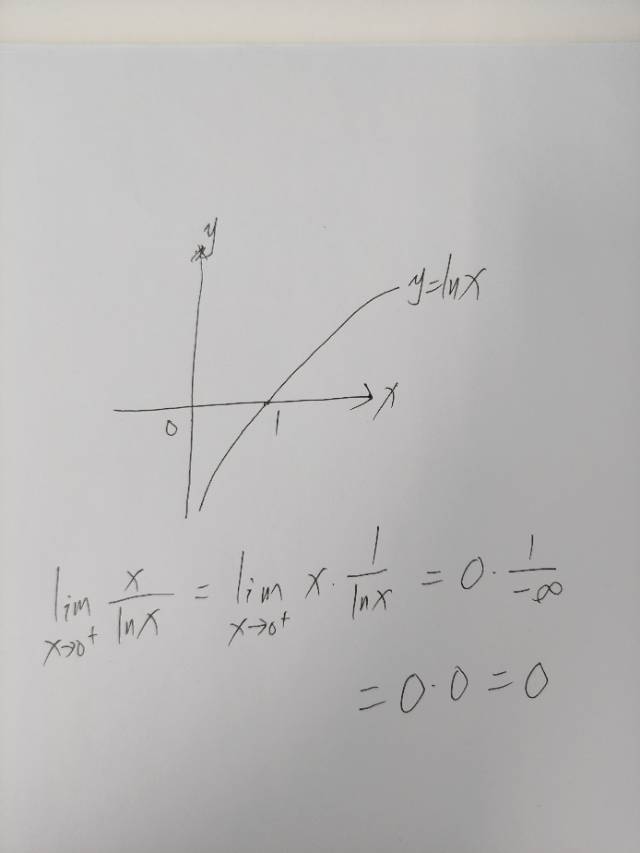 y
y=lnx
x
0
1
lim x→0⁺ x/lnx = lim x→0⁺ x · 1/lnx = 0 · 1/-∞
= 0 · 0 = 0